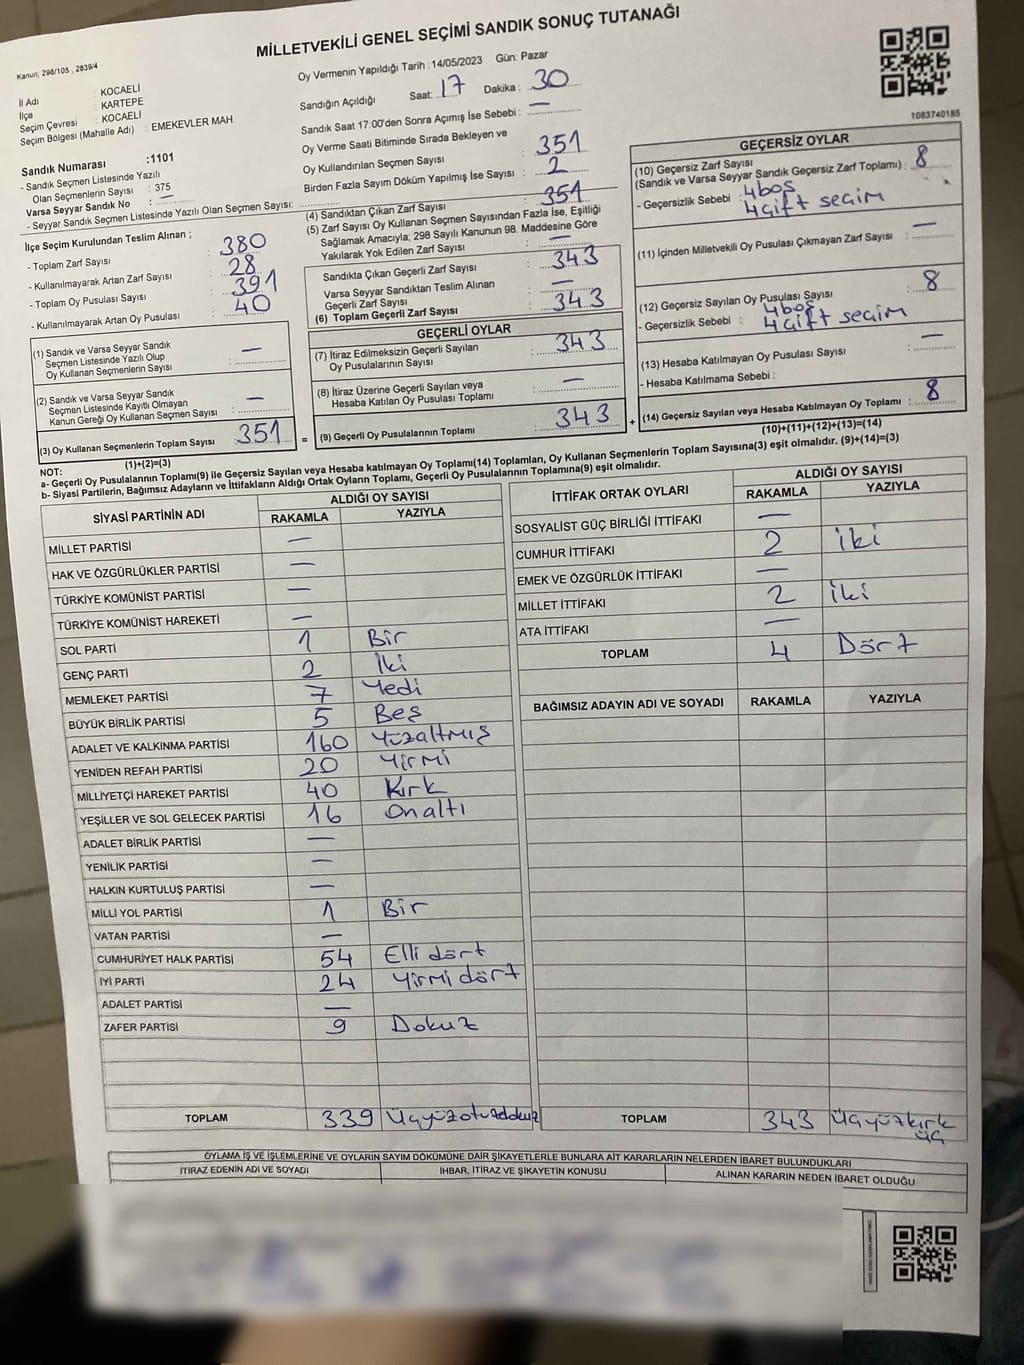 MİLLETVEKİLİ GENEL SEÇİMİ SANDIK SONUÇ TUTANAĞI
Kanun, 298/105 , 2839/4
İl Adı : KOCAELİ
İlçe : KARTEPE
Seçim Çevresi : KOCAELİ
Seçim Bölgesi (Mahalle Adı) : EMEKEVLER MAH.
Sandık Numarası :1101
- Sandık Seçmen Listesinde Yazılı
Olan Seçmenlerin Sayısı : 375
Varsa Seyyar Sandık No : —
- Seyyar Sandık Seçmen Listesinde Yazılı Olan Seçmen Sayısı:
Oy Vermenin Yapıldığı Tarih :14/05/2023 Gün: Pazar
Sandığın Açıldığı Saat: 17 Dakika : 30
Sandık Saat 17:00'den Sonra Açılmış İse Sebebi : —
Oy Verme Saati Bitiminde Sırada Bekleyen ve
Oy Kullandırılan Seçmen Sayısı : 351
Birden Fazla Sayım Döküm Yapılmış İse Sayısı : 2
1083740185
İlçe Seçim Kurulundan Teslim Alınan ;
- Toplam Zarf Sayısı : 380
- Kullanılmayarak Artan Zarf Sayısı : 28
- Toplam Oy Pusulası Sayısı : 391
- Kullanılmayarak Artan Oy Pusulası : 40
(1) Sandık ve Varsa Seyyar Sandık
Seçmen Listesinde Yazılı Olup
Oy Kullanan Seçmenlerin Sayısı : —
(2) Sandık ve Varsa Seyyar Sandık
Seçmen Listesinde Kayıtlı Olmayan
Kanun Gereği Oy Kullanan Seçmen Sayısı : —
(3) Oy Kullanan Seçmenlerin Toplam Sayısı : 351
(1)+(2)=(3)
(4) Sandıktan Çıkan Zarf Sayısı : 351
(5) Zarf Sayısı Oy Kullanan Seçmen Sayısından Fazla İse, Eşitliği
Sağlamak Amacıyla; 298 Sayılı Kanunun 98. Maddesine Göre
Yakılarak Yok Edilen Zarf Sayısı : —
Sandıkta Çıkan Geçerli Zarf Sayısı : 343
Varsa Seyyar Sandıktan Teslim Alınan
Geçerli Zarf Sayısı : —
(6) Toplam Geçerli Zarf Sayısı : 343
GEÇERLİ OYLAR
(7) İtiraz Edilmeksizin Geçerli Sayılan
Oy Pusulalarının Sayısı : 343
(8) İtiraz Üzerine Geçerli Sayılan veya
Hesaba Katılan Oy Pusulası Toplamı : —
= (9) Geçerli Oy Pusulalarının Toplamı : 343
GEÇERSİZ OYLAR
(10) Geçersiz Zarf Sayısı
(Sandık ve Varsa Seyyar Sandık Geçersiz Zarf Toplamı) : 8
- Geçersizlik Sebebi : 4boş
4 çift seçim
(11) İçinden Milletvekili Oy Pusulası Çıkmayan Zarf Sayısı : —
(12) Geçersiz Sayılan Oy Pusulası Sayısı : 8
- Geçersizlik Sebebi : 4boş
4 çift seçim
(13) Hesaba Katılmayan Oy Pusulası Sayısı : —
- Hesaba Katılmama Sebebi :
+ (14) Geçersiz Sayılan veya Hesaba Katılmayan Oy Toplamı : 8
(10)+(11)+(12)+(13)=(14)
NOT:
a- Geçerli Oy Pusulalarının Toplamı(9) ile Geçersiz Sayılan veya Hesaba katılmayan Oy Toplamı(14) Toplamları, Oy Kullanan Seçmenlerin Toplam Sayısına(3) eşit olmalıdır. (9)+(14)=(3)
b- Siyasi Partilerin, Bağımsız Adayların ve İttifakların Aldığı Ortak Oyların Toplamı, Geçerli Oy Pusulalarının Toplamına(9) eşit olmalıdır.
SİYASİ PARTİNİN ADI ALDIĞI OY SAYISI
RAKAMLA YAZIYLA
MİLLET PARTİSİ —
HAK VE ÖZGÜRLÜKLER PARTİSİ —
TÜRKİYE KOMÜNİST PARTİSİ —
TÜRKİYE KOMÜNİST HAREKETİ —
SOL PARTİ 1 Bir
GENÇ PARTİ 2 İki
MEMLEKET PARTİSİ 7 Yedi
BÜYÜK BİRLİK PARTİSİ 5 Beş
ADALET VE KALKINMA PARTİSİ 160 Yüzaltmış
YENİDEN REFAH PARTİSİ 20 Yirmi
MİLLİYETÇİ HAREKET PARTİSİ 40 Kırk
YEŞİLLER VE SOL GELECEK PARTİSİ 16 Onaltı
ADALET BİRLİK PARTİSİ —
YENİLİK PARTİSİ —
HALKIN KURTULUŞ PARTİSİ —
MİLLİ YOL PARTİSİ 1 Bir
VATAN PARTİSİ —
CUMHURİYET HALK PARTİSİ 54 Elli dört
İYİ PARTİ 24 Yirmi dört
ADALET PARTİSİ —
ZAFER PARTİSİ 9 Dokuz
TOPLAM 339 Üçyüzotuzdokuz
İTTİFAK ORTAK OYLARI ALDIĞI OY SAYISI
RAKAMLA YAZIYLA
SOSYALİST GÜÇ BİRLİĞİ İTTİFAKI —
CUMHUR İTTİFAKI 2 İki
EMEK VE ÖZGÜRLÜK İTTİFAKI —
MİLLET İTTİFAKI 2 İki
ATA İTTİFAKI —
TOPLAM 4 Dört
BAĞIMSIZ ADAYIN ADI VE SOYADI RAKAMLA YAZIYLA
TOPLAM 343 Üçyüzkırk
üç
OYLAMA İŞ VE İŞLEMLERİNE VE OYLARIN SAYIM DÖKÜMÜNE DAİR ŞİKAYETLERLE BUNLARA AİT KARARLARIN NELERDEN İBARET BULUNDUKLARI
İTİRAZ EDENİN ADI VE SOYADI İHBAR, İTİRAZ VE ŞİKAYETİN KONUSU ALINAN KARARIN NEDEN İBARET OLDUĞU